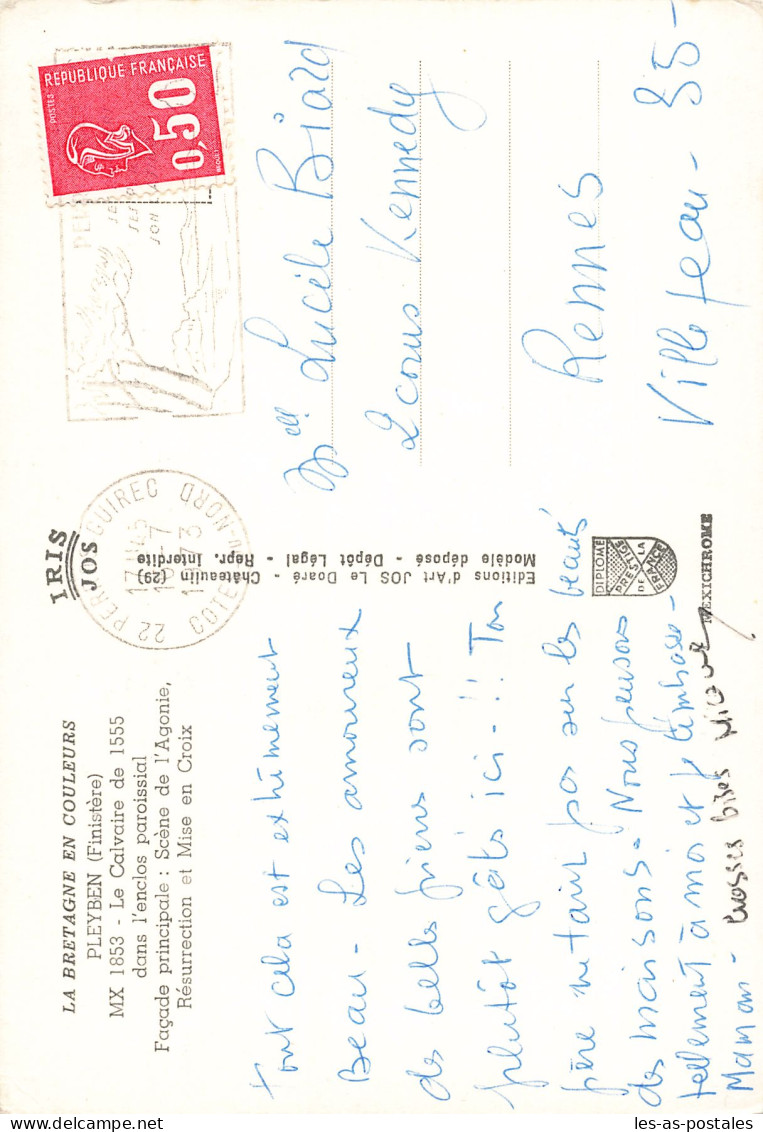 LA BRETAGNE EN COULEURS
PLEYBEN (Finistère)
MX 1853 - Le Calvaire de 1555
dans l'enclos paroissial
Façade principale : Scène de l'Agonie,
Résurrection et Mise en Croix
Tout cela est extrêmement
Beau - Les amoureux
des belles
sont
plutôt gâtés ici - !! Ton
père
pas sur les beautés
des maisons - Nous pensons
tellement à moi et je t'embrasse -
Maman - Grosses bises
IRIS
JOS
Editions d'Art JOS Le Doaré - Châteaulin (29)
Modèle déposé - Dépôt Légal - Repr. Interdite
DIPLOME
PRESTIGE
DE LA
FRANCE
MEXICHROME
REPUBLIQUE FRANÇAISE
POSTES
0,50
22 PERROS GUIREC
17H45
10-7
1973
COTES DU NORD
SON
Mell Lucile Biard
2 cours Kennedy
Rennes
Villejean - 35 -
les-as-postales